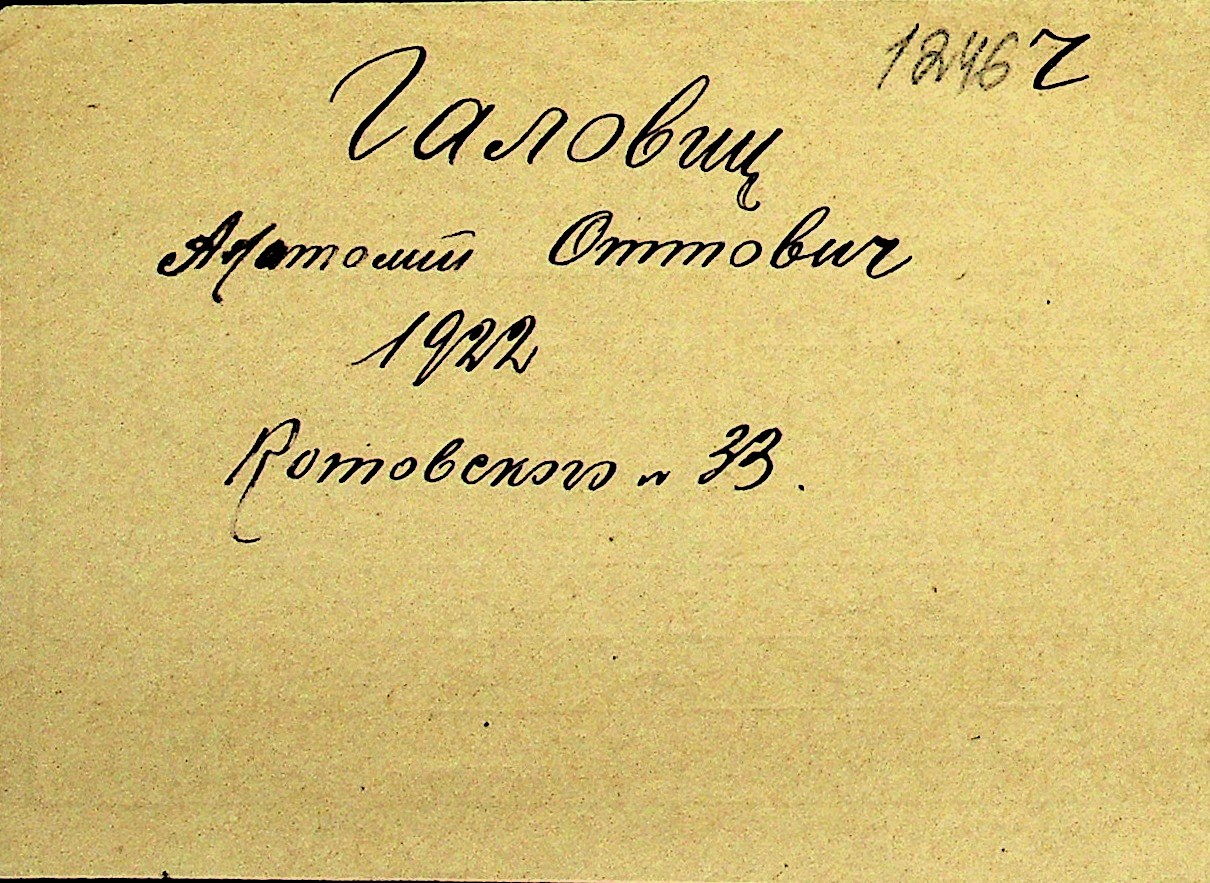 1246 ч
Галовиц
Анатолий Оттович
1922
Котовского № 33.